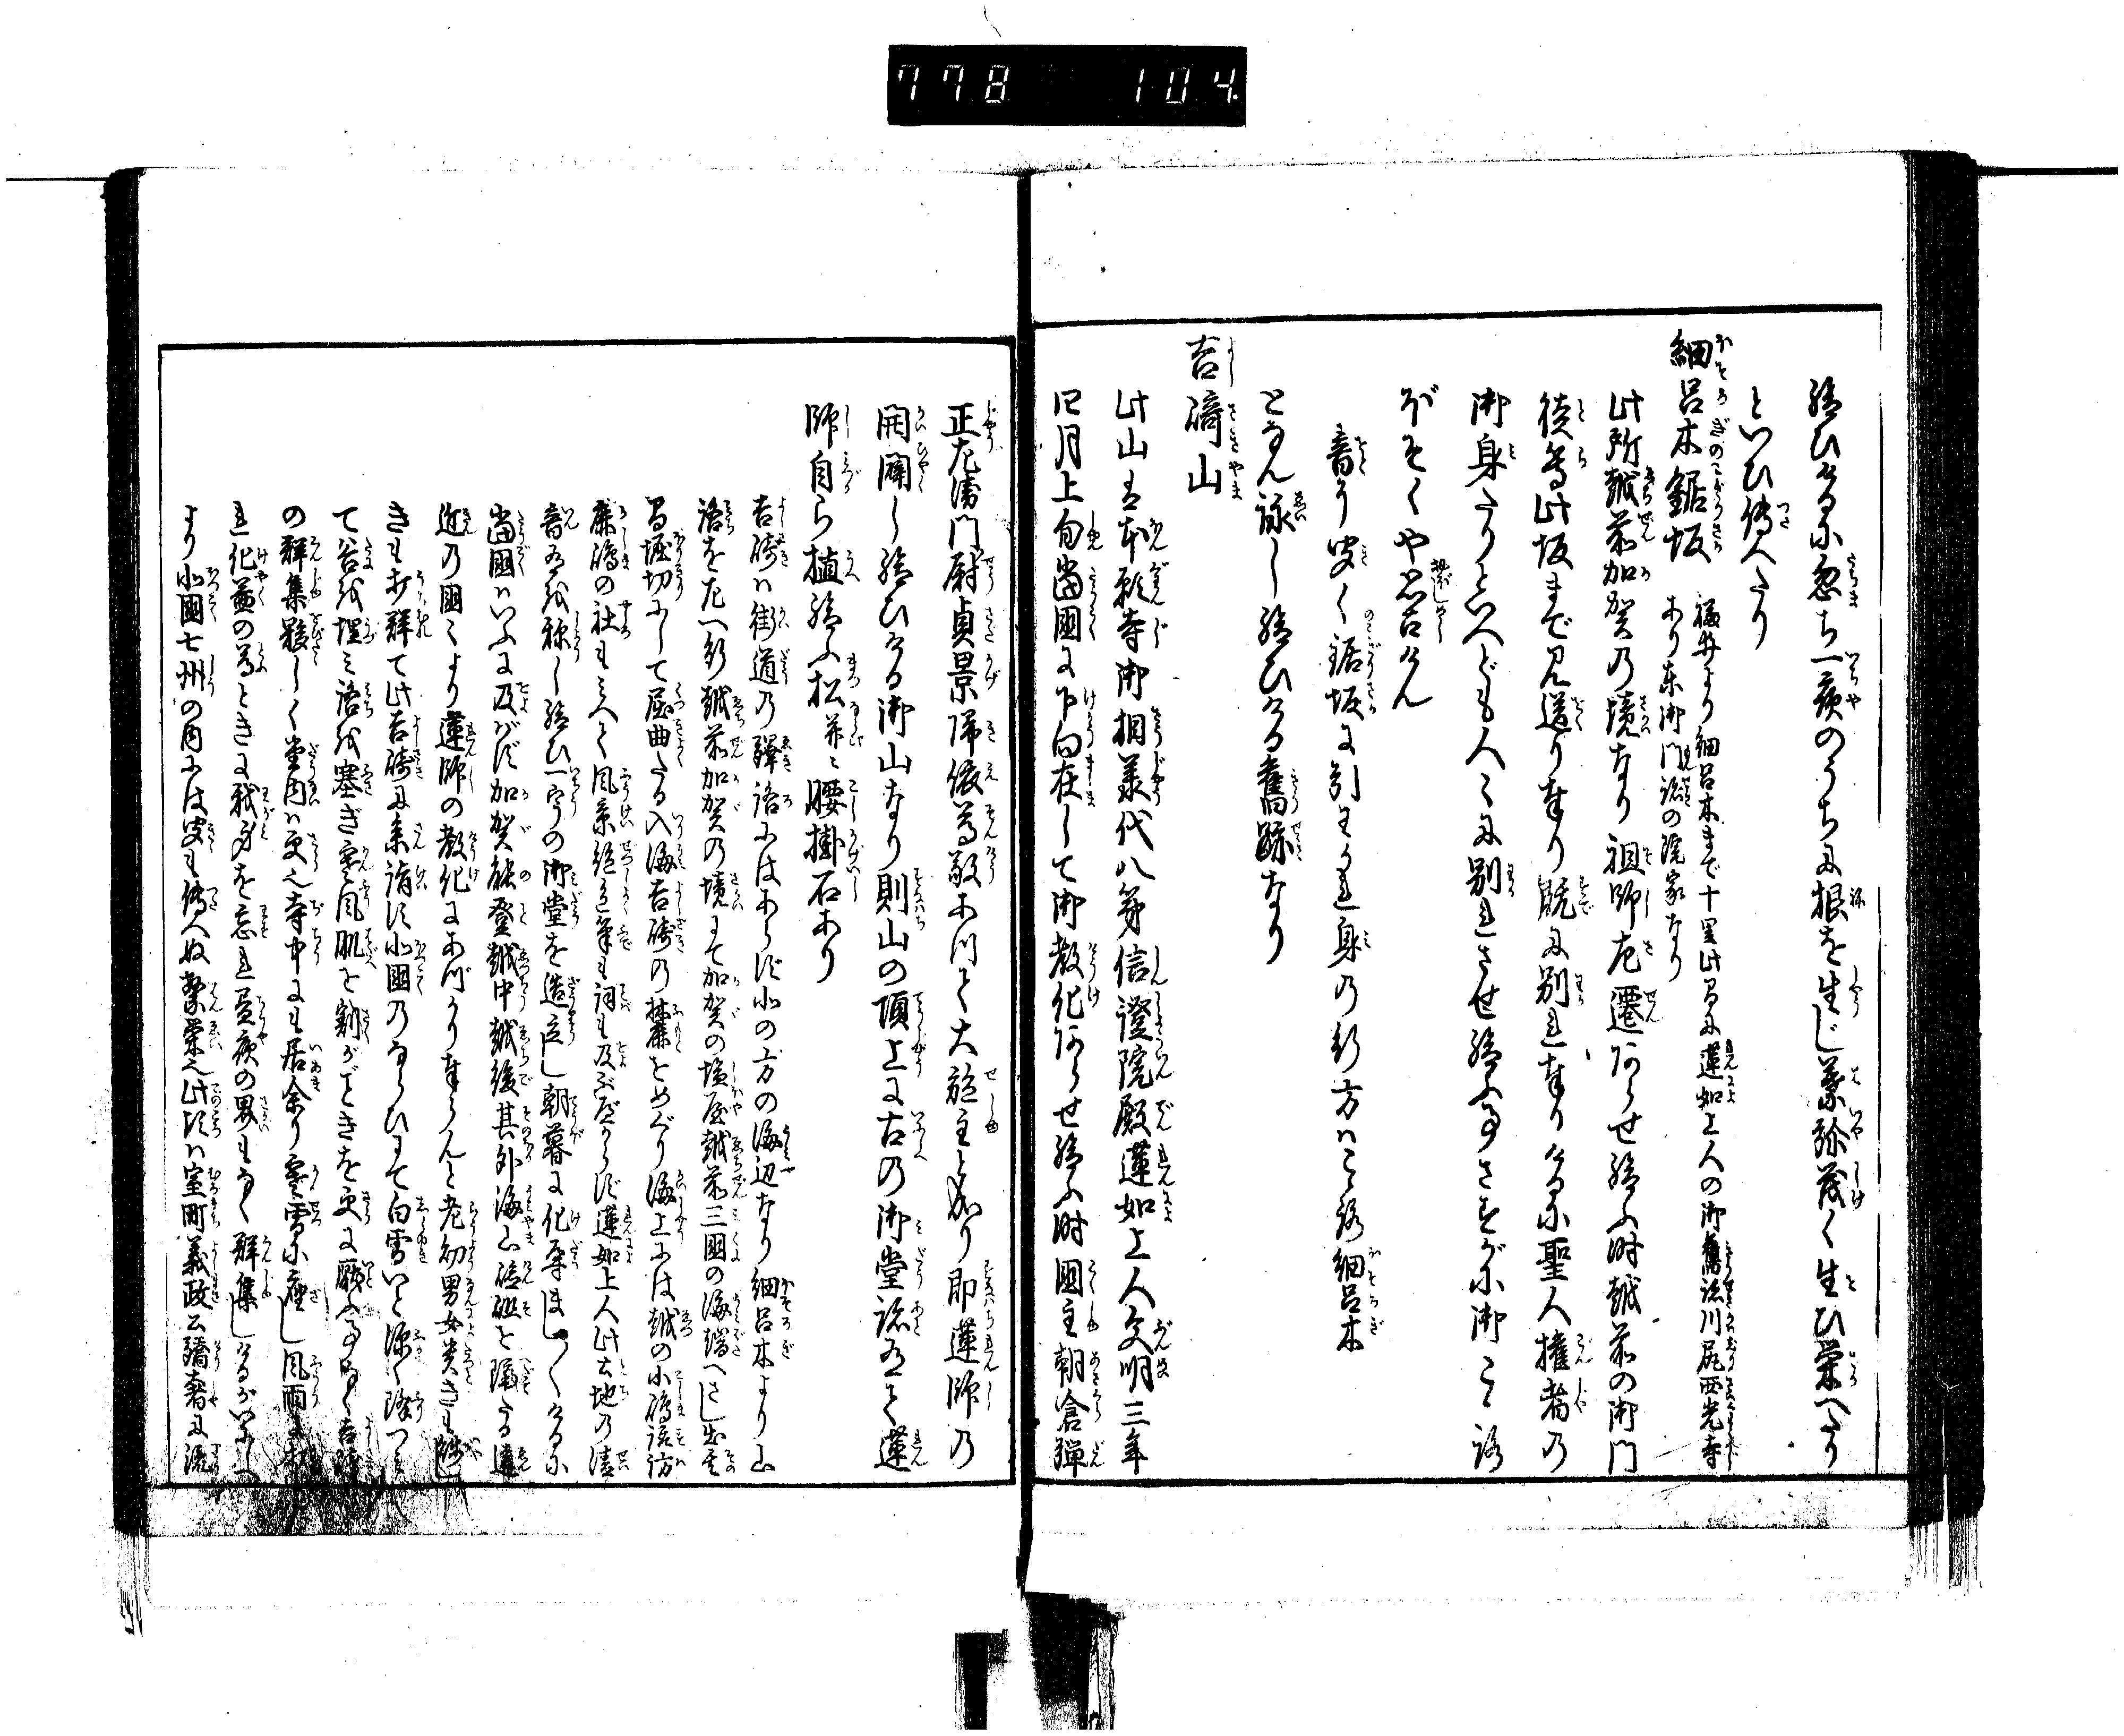 778 104.
給ひけるに忽ち一夜のうちに根を生じ葉弥茂く生ひ栄へたり
といひ傳へたり
細呂木鋸坂 福井より細呂木まで十里此間に蓮如上人の御舊跡川尻西光寺
あり東御門跡の院家なり
此所越前加賀の境なり祖師左遷ならせ給ふ時越前の御門
徒等此坂まで見送り奉り既に別れ奉りけるに聖人権者の
御身なりといへども人々に別れさせ給ふ事さすがに御こゝろ
ぼそくや思召けん
音にきく鋸坂に引わかれ身の行方はこゝろ細呂木
となん詠じ給ひける舊跡なり
吉﨑山
此山は本願寺御相義代八世信證院殿蓮如上人文明三年
四月上旬當國に下向在して御教化ならせ給ふ時國主朝倉弾
正左衛門尉貞景帰依尊敬あつて大施主と成り即蓮師の
開闢し給ひける御山なり則山の頂上に古の御堂跡有て蓮
師自ら植給ふ松并に腰掛石あり
吉﨑は街道の驛路にはあらず北の方の海辺なり細呂木より山
路を左へ行越前加賀の境にて加賀の塩屋越前三國の海端へさし出其
間堀切にして屈曲たる入海吉﨑の麓をめぐり海上には越の小嶋諏訪
鹿嶋の社もみへて風景絶勝筆も詞も及ぶ所ならず蓮如上人此土地の清
音有を称し給ひ一宇の御堂を造立し朝暮に化導ましましけるに
當國はいふに及ばず加賀能登越中越後其外海山磯礒を隔たる遠
近の國々より蓮師の教化にあづかり奉らんと老幼男女貴きも賎し
きも打群て此吉﨑に参詣す北國のならひにて白雪いと深く降つミ
て谷を埋ミ路を塞ぎ寒風肌を割がごときを更に厭ふ事なく吉﨑
の群集夥しく堂内は更也寺中にも居余り雪霜に座し風雨に打
れ化益の尊ときに我身を忘れ昼夜の界もなく群集しけるがいにしへ
より北國七州の内には聞も傳へぬ繁栄也此頃は室町義政公驕奢に流